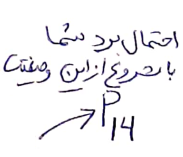 احتمال برد شما
با شروع از این وضعیت
P14